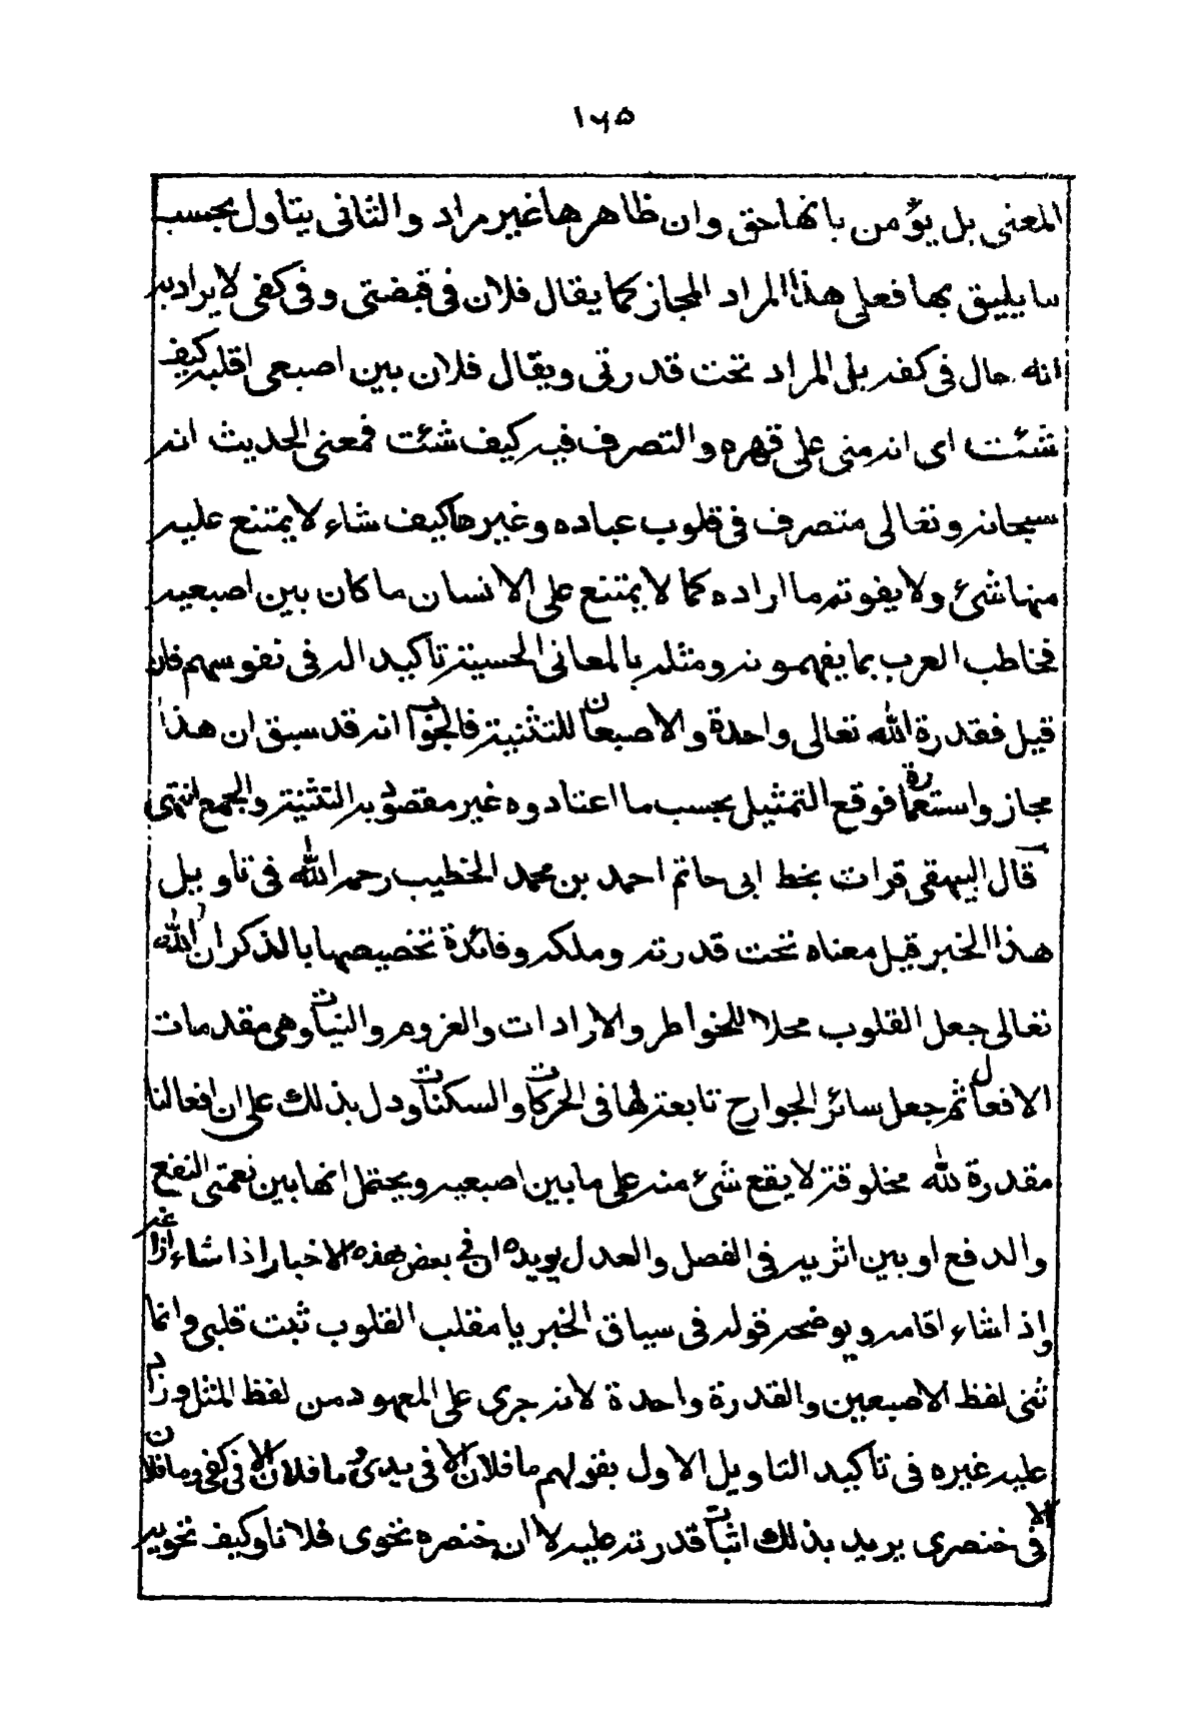 ۱۶۵
المعنى بل يؤمن بانها حق وان ظاهرها غير مراد والثانى يتاول بحسب
ما يليق بها فعلى هذا المراد المجاز كما يقال فلان فى قبضتى و فى كفى لا يراد به
انه حال فى كفه بل المراد تحت قدرتى ويقال فلان بين اصبعى اقلبه كيف
شئت اى انه منى على قهره والتصرف فيه كيف شئت فمعنى الحديث انه
سبحانه وتعالى متصرف فى قلوب عباده وغيرها كيف شاء لا يمتنع عليه
منها شئ ولا يفوته ما اراده كما لا يمتنع على الانسان ما كان بين اصبعيه
فخاطب العرب بما يفهمونه ومثله بالمعانى الحسية تاكيدا له فى نفوسهم فان
قيل فقدرة الله تعالى واحدة والاصبعان للتثنية فالجواب انه قد سبق ان هذا
مجاز واستعارة فوقع التمثيل بحسب ما اعتادوه غير مقصود به التثنية والجمع انتهى
قال البيهقى قرات بخط ابى حاتم احمد بن محمد الخطيب رحمه الله فى تاويل
هذا الخبر قيل معناه تحت قدرته وملكه وفائدة تخصيصها بالذكر ان الله
تعالى جعل القلوب محلا للخواطر والارادات والعزوم والنيات وهى مقدمات
الافعال ثم جعل سائر الجوارح تابعة لها فى الحركات والسكنات ودل بذلك على ان افعالنا
مقدرة لله مخلوقة لا يقع شئ منه على ما بين اصبعيه ويحتمل انها بين نعمتى النفع
والدفع او بين اثريه فى الفصل والعدل يويده ان فى بعض هذه الاخبار اذا شاء ازاغه
واذا شاء اقامه ويوضحه قوله فى سياق الخبر يا مقلب القلوب ثبت قلبى وانما
ثنى لفظ الاصبعين والقدرة واحدة لانه جرى على المعهود من لفظ المثل وزاد
عليه غيره فى تاكيد التاويل الاول بقولهم ما فلان الا فى يدى وما فلان الا فى كفى وما فلان
الا فى خنصرى يريد بذلك اثبات قدرته عليه لا ان خنصره تحوى فلانا وكيف تحويه